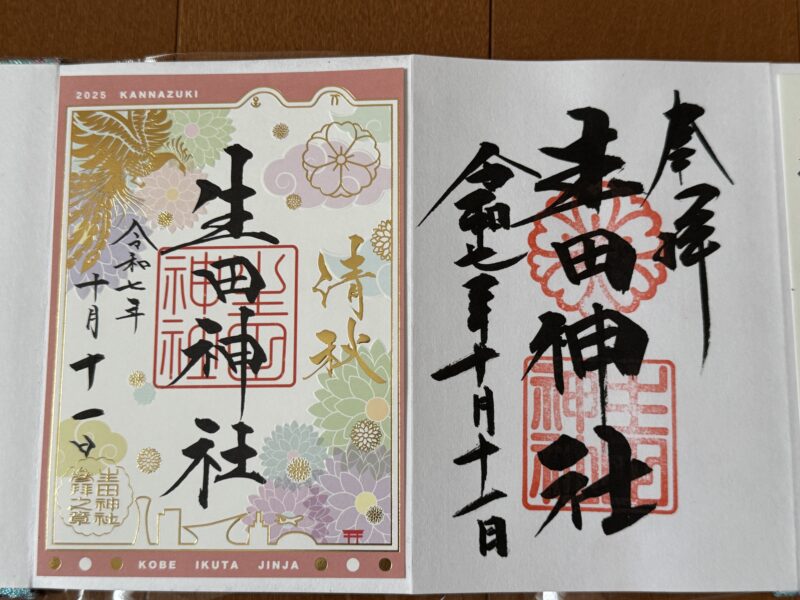 2025 KANNAZUKI
清秋
生田神社
生田
神社
令和七年
十月十一日
生田神社
KOBE IKUTA JINJA
奉拝
生田神社
生田
神社
令和七年十月十一日